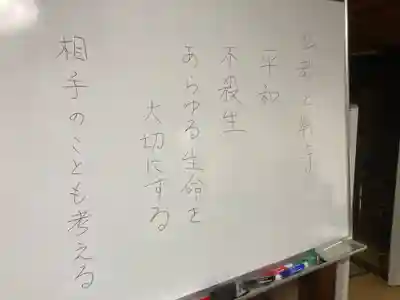 平和
不殺生
あらゆる生命を
大切にする
相手のことも考える